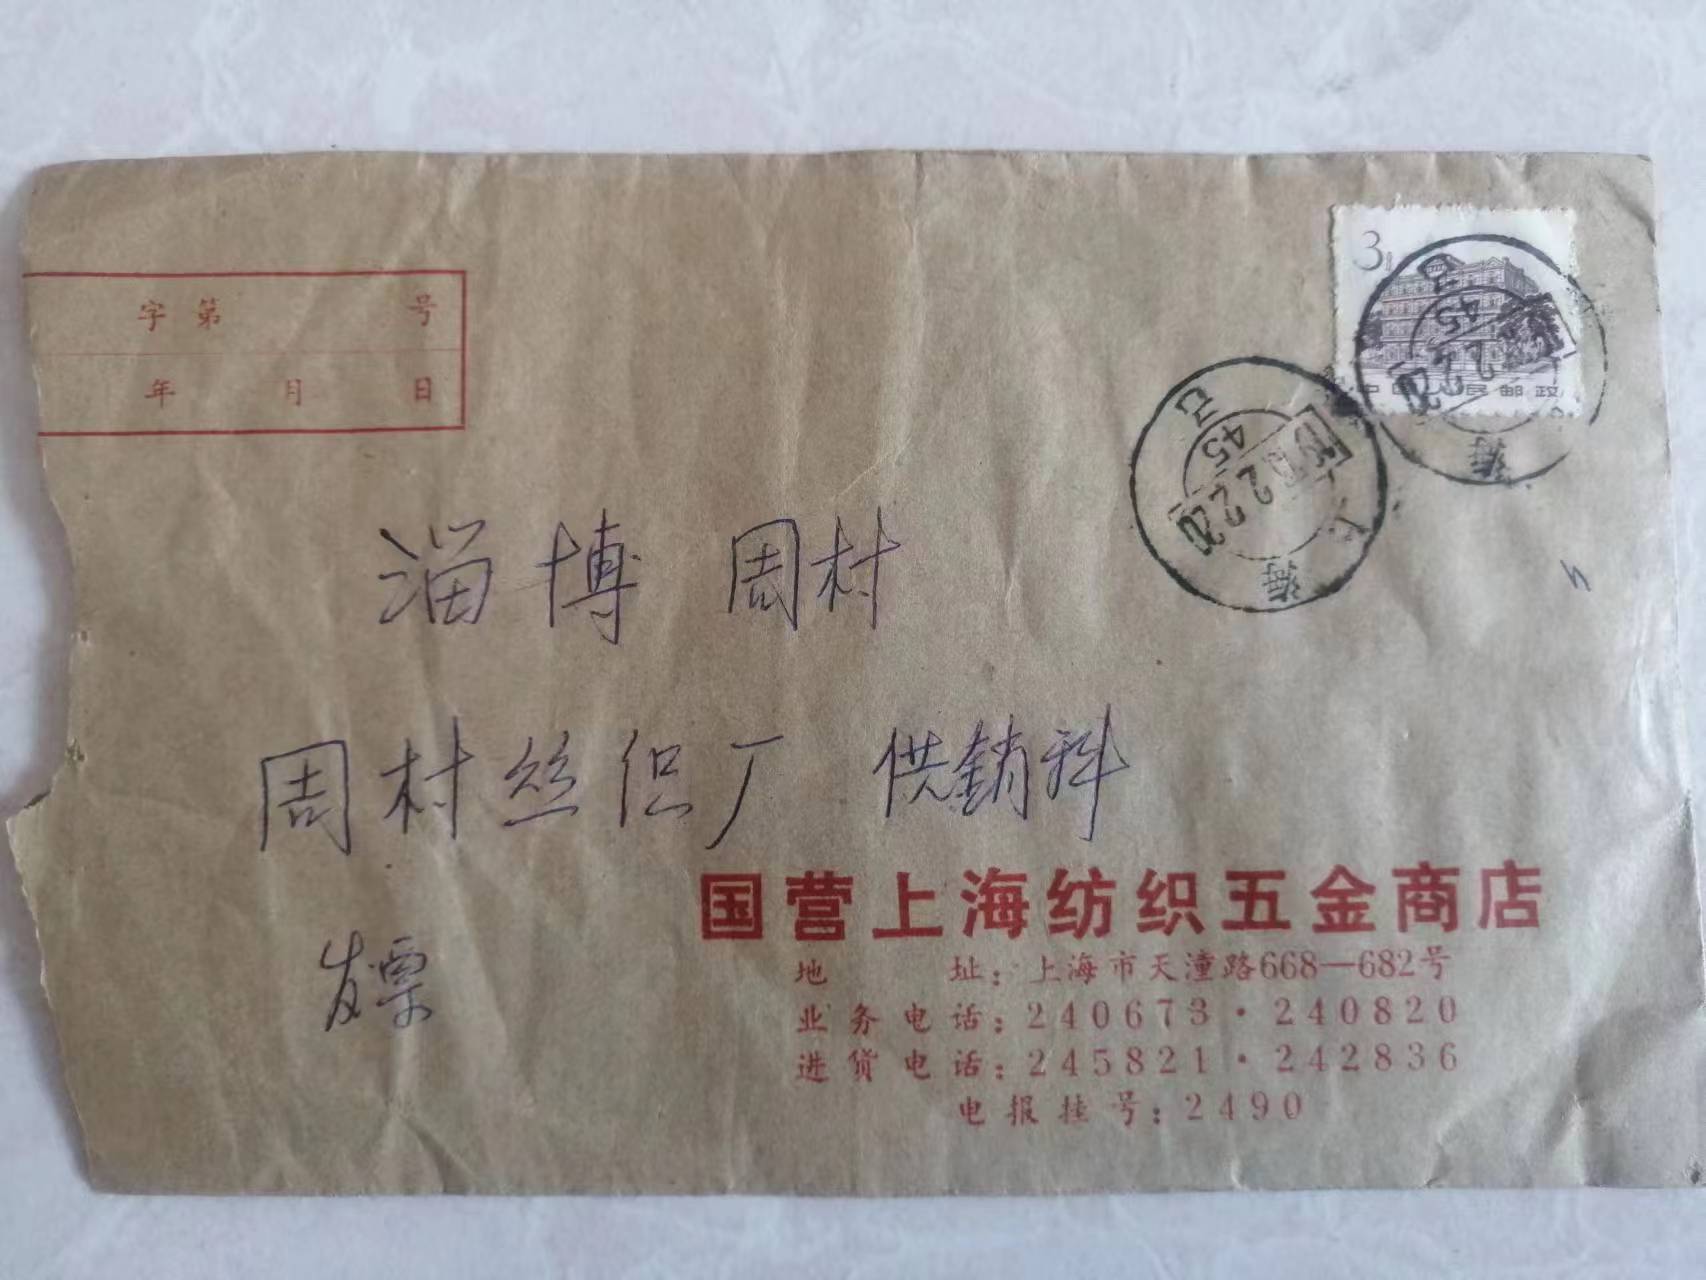 3
中国人民邮政
上海
45
己
上海
2.2.20
45
己
字第 号
年 月 日
淄博 周村
周村丝织厂 供銷科
发票
国营上海纺织五金商店
地 址：上海市天潼路668—682号
业务电话：240673·240820
进货电话：245821·242836
电报挂号：2490